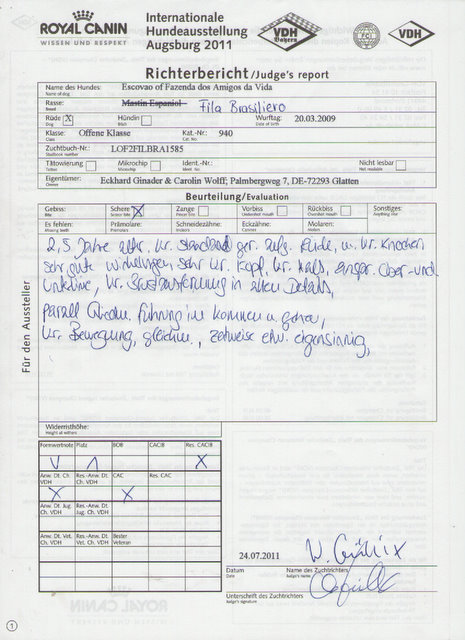 ROYAL CANIN
WISSEN UND RESPEKT
Internationale
Hundeausstellung
Augsburg 2011
VDH
Bayern
FCI
VDH
Richterbericht/Judge's report
Name des Hundes: Escovao of Fazenda dos Amigos da Vida
Name of dog
Rasse: Mastin Espaniol Fila Brasiliero
Breed
Rüde X Hündin Wurftag: 20.03.2009
Dog Bitch Date of birth
Klasse: Offene Klasse Kat.-Nr.: 940
Class Cat. No.
Zuchtbuch-Nr.: LOF2FILBRA1585
Studbook number
Tätowierung Mikrochip Ident.-Nr. Nicht lesbar
Tattoo Microchip Ident. No. Not readable
Eigentümer: Eckhard Ginader & Carolin Wolff, Palmbergweg 7, DE-72293 Glatten
Owner
Beurteilung/Evaluation
Gebiss: Schere X Zange Vorbiss Rückbiss Sonstiges:
Bite Scissor bite Pincer bite Undershot mouth Overshot mouth Anything else
Es fehlen: Prämolare: Schneidezähne: Eckzähne: Molaren:
Missing teeth Premolars Incisors Canines Molars
2,5 Jahre alter, kr. Standard ger. aufg. Rüde, u. kr. Knochen
sehr gute Winkelungen, sehr kr. Kopf, kr. Hals, Ober- und
kr. in allen Details,
parall im kommen u. gehen,
kr. Bewegung, zeitweise etw. eigensinnig,
Für den Aussteller
Widerristhöhe:
Height at withers
Formwertnote Platz BOB CACIB Res. CACIB
V 1 X
Anw. Dt. Ch. VDH Res.-Anw. Dt. Ch. VDH CAC Res. CAC
X X
Anw. Dt. Jug. Ch. VDH Res.-Anw. Dt. Jug. Ch. VDH
Anw. Dt. Vet. Ch. VDH Res.-Anw. Dt. Vet. Ch. VDH Bester Veteran
24.07.2011
Datum Name des Zuchtrichters
Date Judge's name
Unterschrift des Zuchtrichters
Judge's signature
ROYAL CANIN
1